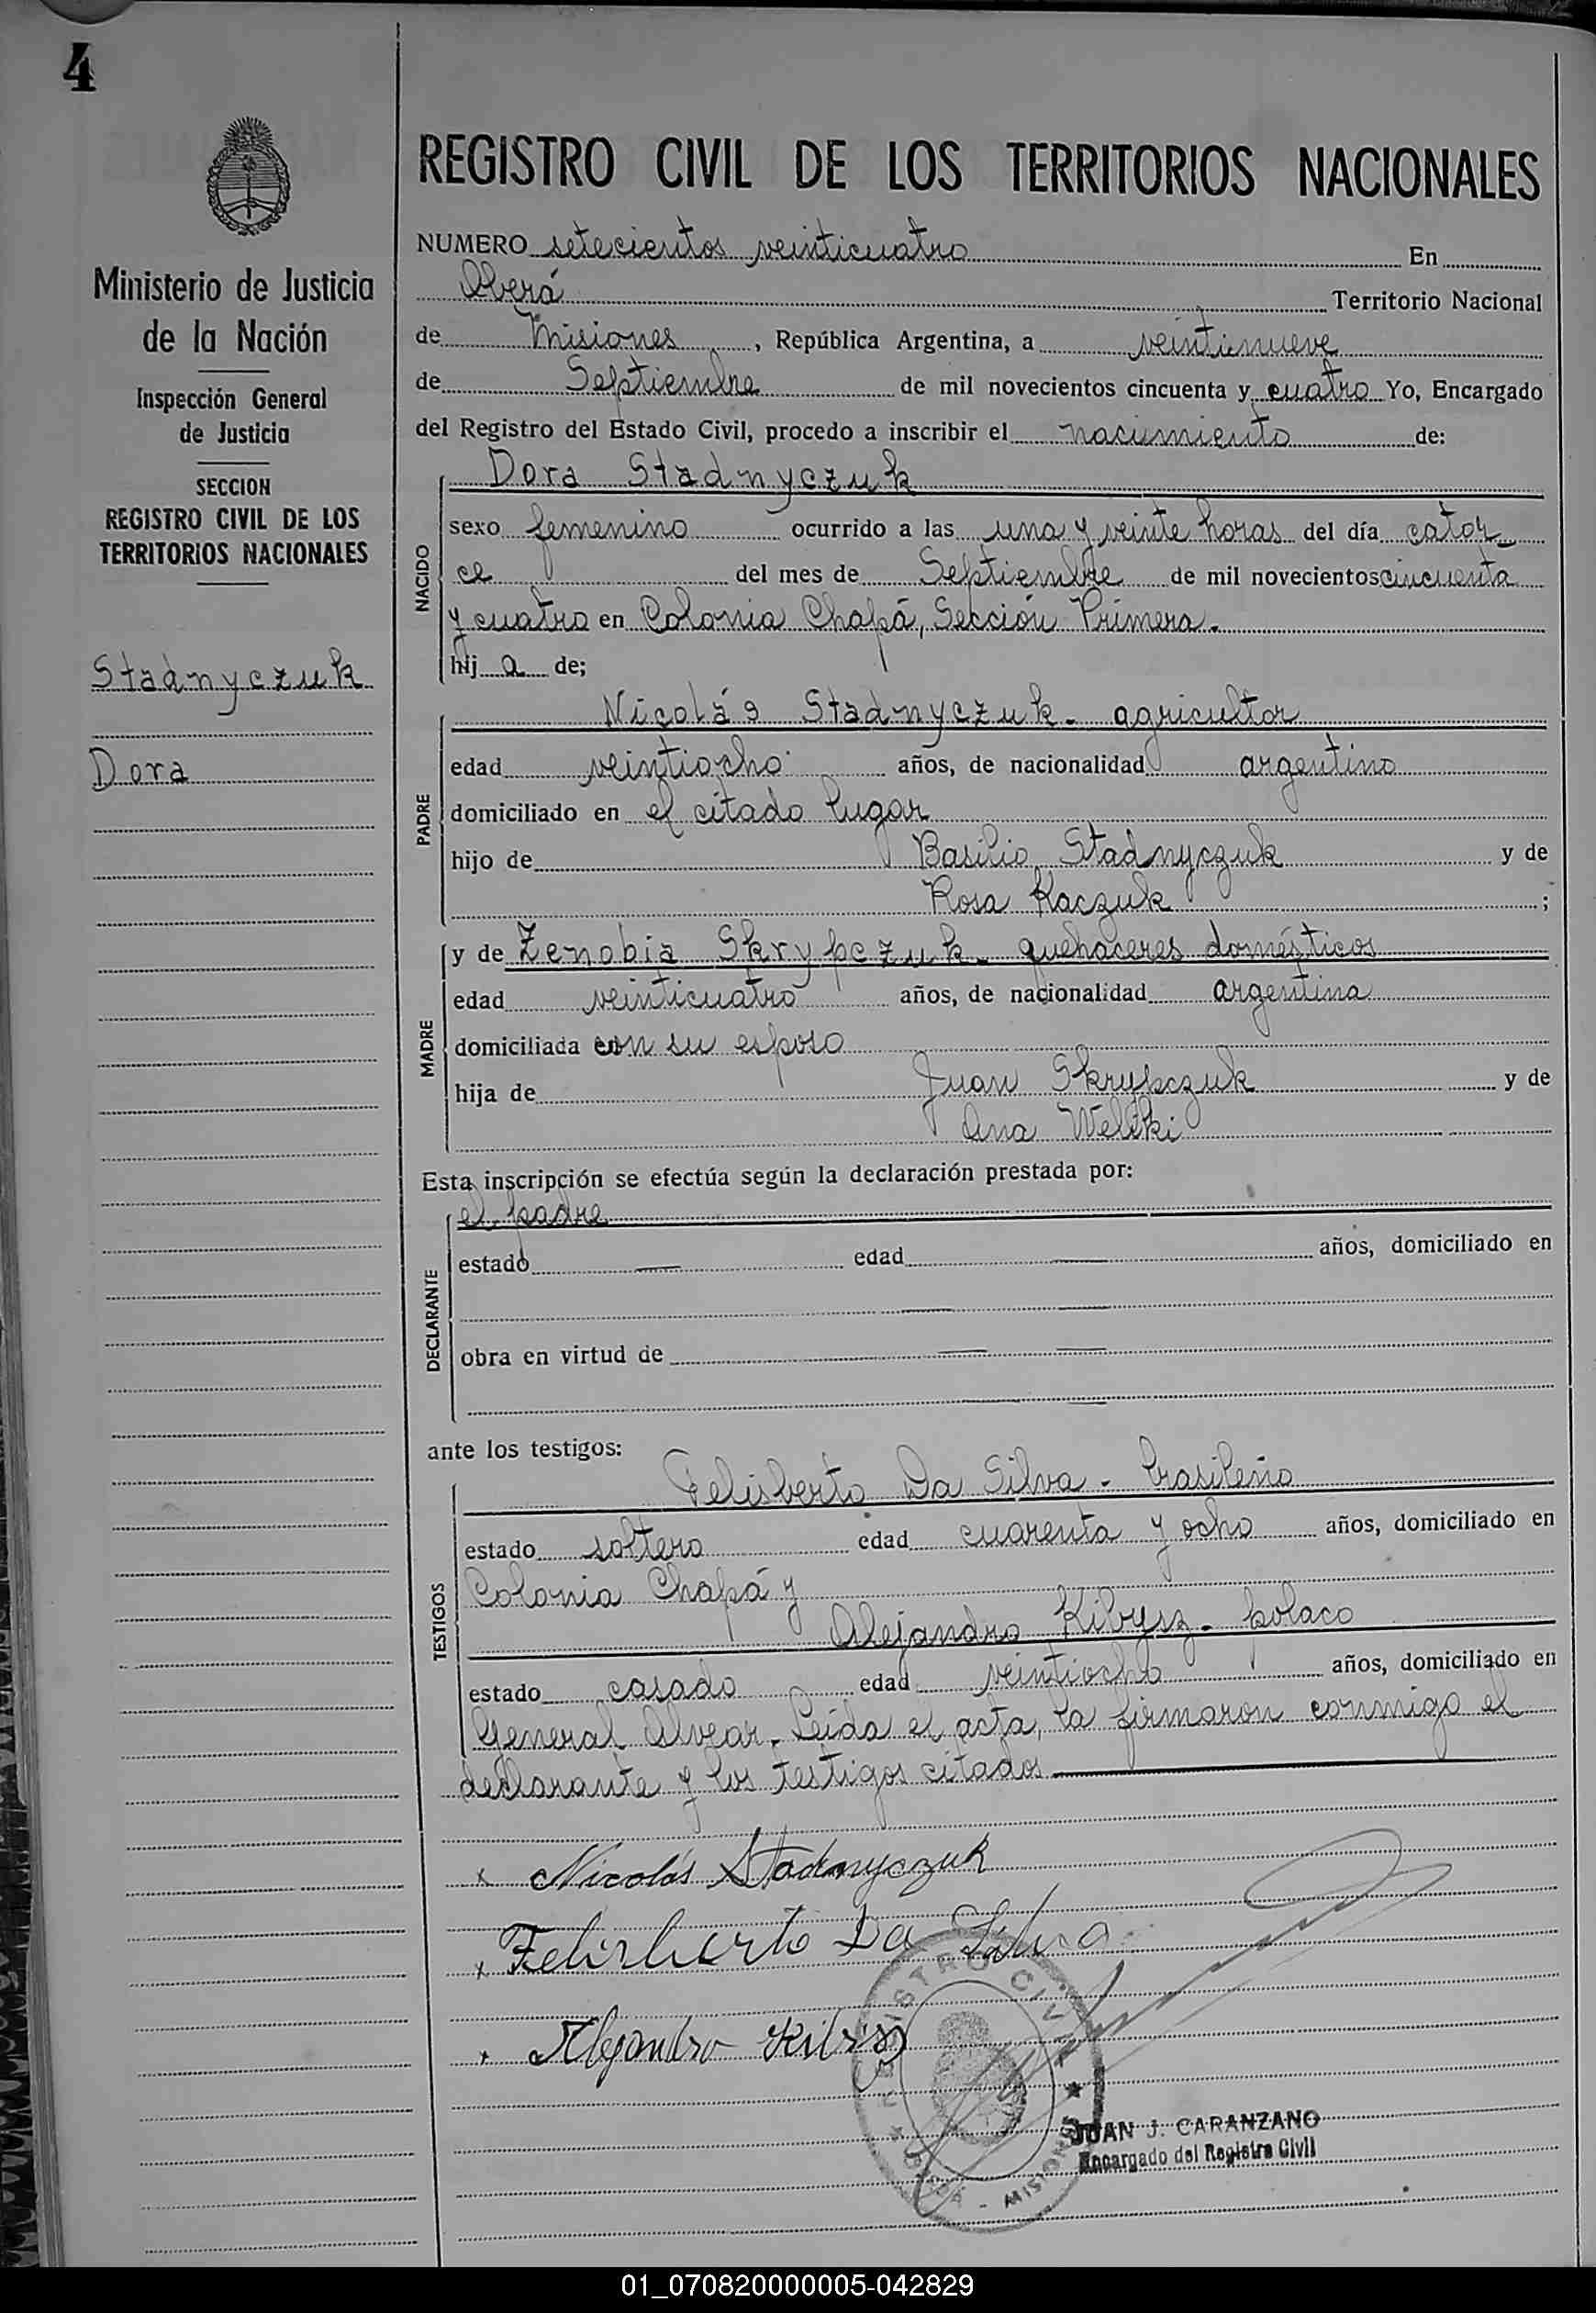 4
Ministerio de Justicia
de la Nación
Inspección General
de Justicia
SECCION
REGISTRO CIVIL DE LOS
TERRITORIOS NACIONALES
Stadnyczuk
Dora
REGISTRO CIVIL DE LOS TERRITORIOS NACIONALES
NUMERO setecientos veinticuatro En
Oberá Territorio Nacional
de Misiones, República Argentina, a veintinueve
de Septiembre de mil novecientos cincuenta y cuatro Yo, Encargado
del Registro del Estado Civil, procedo a inscribir el nacimiento de:
Dora Stadnyczuk
NACIDO
sexo femenino ocurrido a las una y veinte horas del día cator-
ce del mes de Septiembre de mil novecientos cincuenta
y cuatro en Colonia Chapá, Sección Primera.
hij a de;
Nicolás Stadnyczuk - agricultor
PADRE
edad veintiocho años, de nacionalidad argentino
domiciliado en el citado lugar
hijo de Basilio Stadnyczuk y de
Rosa Kaczuk ;
y de Zenobia Skrypczuk - quehaceres domésticos
MADRE
edad veinticuatro años, de nacionalidad argentina
domiciliada con su esposo
hija de Juan Skrypczuk y de
Ana Weliki
Esta inscripción se efectúa según la declaración prestada por:
el padre
DECLARANTE
estado — edad — años, domiciliado en
— —
obra en virtud de — —
—
ante los testigos:
Felisberto Da Silva - brasileño
TESTIGOS
estado soltero edad cuarenta y ocho años, domiciliado en
Colonia Chapá y
Alejandro Kibysz - polaco
estado casado edad veintiocho años, domiciliado en
General Alvear. Leída el acta, la firmaron conmigo el
declarante y los testigos citados
x Nicolás Stadnyczuk
x Felisberto Da Silva
x Alejandro
REGISTRO CIVIL
OBERÁ - MISIONES
JUAN J. CARANZANO
Encargado del Registro Civil
01_070820000005-042829